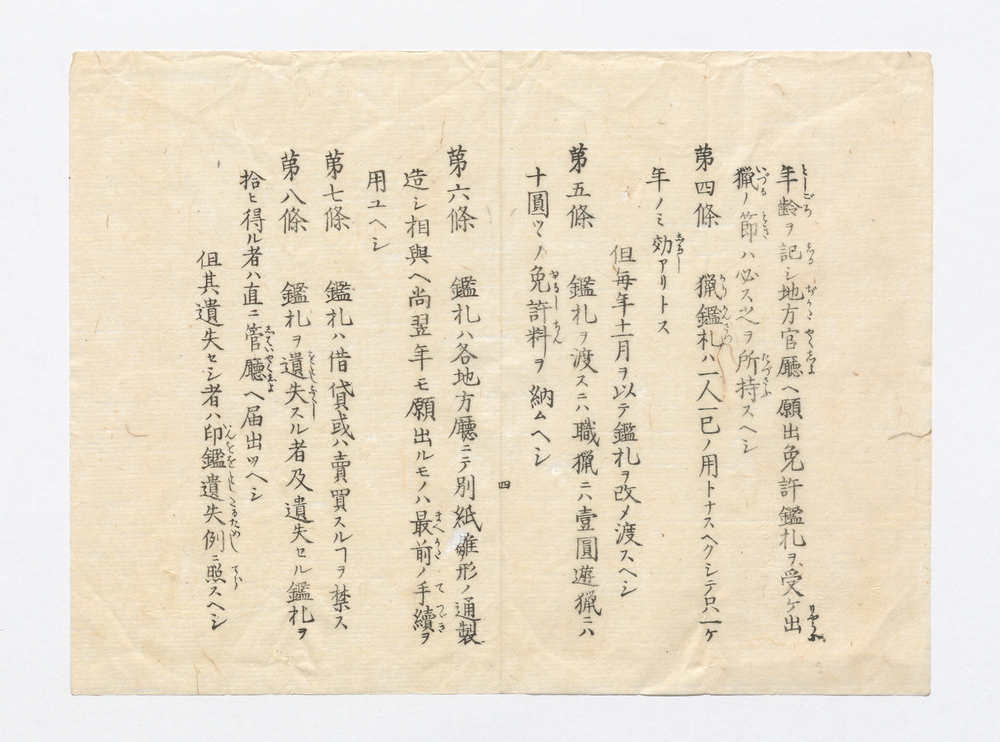 年齢ヲ記シ地方官廳ヘ願出免許鑑札ヲ受ケ出
獵ノ節ハ必ス之ヲ所持スヘシ
第四條 獵鑑札ハ一人一已ノ用トナスヘクシテ只一ケ
年ノミ効アリトス
但毎年十一月ヲ以テ鑑札ヲ改メ渡スヘシ
第五條 鑑札ヲ渡スニハ職獵ニハ壹圓遊獵ニハ
十圓ツヽノ免許料ヲ納ムヘシ
第六條 鑑札ハ各地方廳ニテ別紙雛形ノ通製
造シ相與ヘ尚翌年モ願出ルモノハ最前ノ手續ヲ
用ユヘシ
第七條 鑑札ハ借貸或ハ賣買スルヿヲ禁ス
第八條 鑑札ヲ遺失スル者及遺失セル鑑札ヲ
拾ヒ得ル者ハ直ニ管廳ヘ届出ツヘシ
但其遺失セシ者ハ印鑑遺失例ニ照スヘシ
四